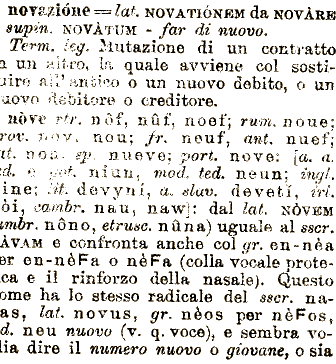 novazióne = lat. NOVATIÓNEM da NOVÀRE
supin. NOVÀTUM - far di nuovo.
Term. leg. Mutazione di un contratto
n un altro, la quale avviene col sosti-
uire all'antico o un nuovo debito, o un
uovo debitore o creditore.
nòve rtr. nôf, nûf, noef; rum. noue;
rov. nov, nou; fr. neuf, ant. nuef;
at. nou sp. nueve; port. nove: [a. a.
ed. e got. niun, mod. ted. neun; ingl.
ine; lit. devyni, a. slav. deveti, irl.
òi, cambr. nau, naw]: dal lat. NÒVEM
umbr. nôno, etrusc. nûna) uguale al sscr.
ÀVAM e confronta anche col gr. en-nèa
er en-nèFa o nèFa (colla vocale prote-
ca e il rinforzo della nasale). Questo
ome ha lo stesso radicale del sscr. na-
as, lat. novus, gr. nèos per nèFos,
d. neu nuovo (v. q. voce), e sembra vo-
lia dire il numero nuovo o giovane, o sia-